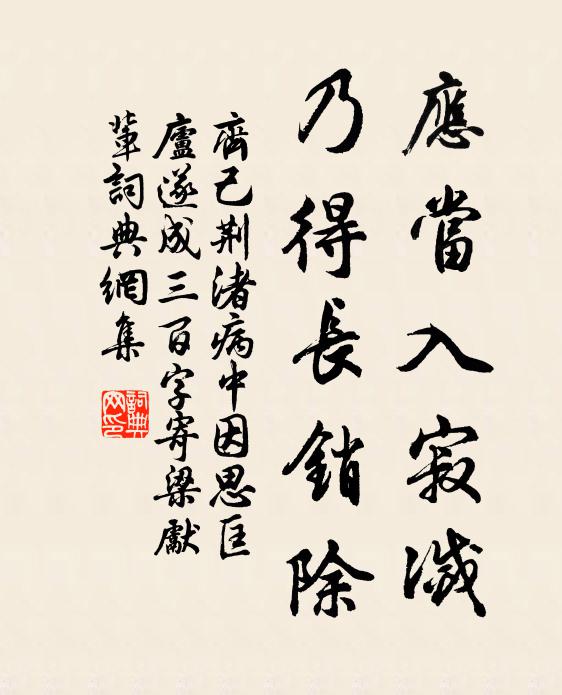 應當入寂滅
乃得長銷除
齊己荆渚病中因思匡
廬遂成三百字寄梁獻
輩詞典網集
詞典
网印